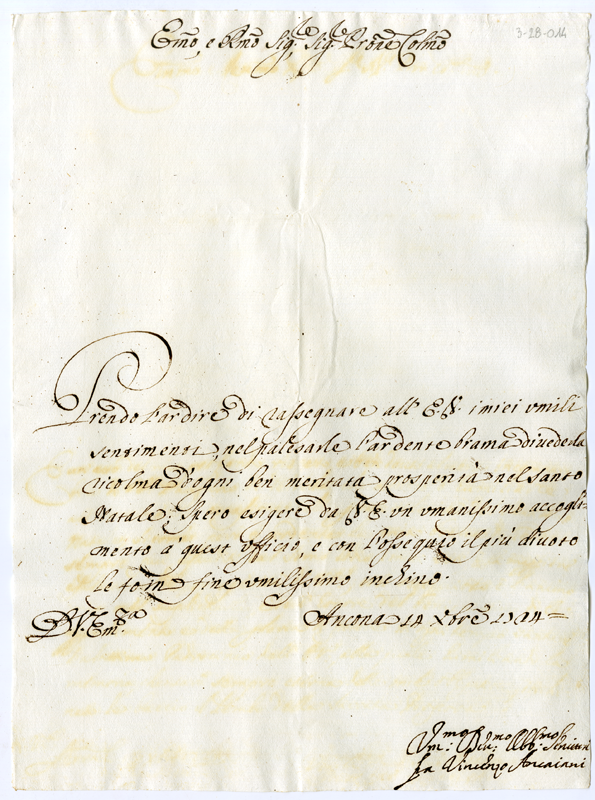 3-28-014
Emo, e Rmo Sig.re Sig.re Prone Colmo
Prendo l'ardire di rassegnare all' E.V. i miei umili
sentimenti, nel palesarle l'ardente brama di vederla
ricolma d'ogni ben meritata prosperità nel santo
Natale; spero esigere da V.E. un umanissimo accogli-
mento à quest'ufficio, e con l'ossequio il più divoto
le fo in fine umilissimo inchino.
D V. Em.za
Ancona 14 Xbre
Um:mo Dev:mo Obb:mo Servitore
fra Vincenzo